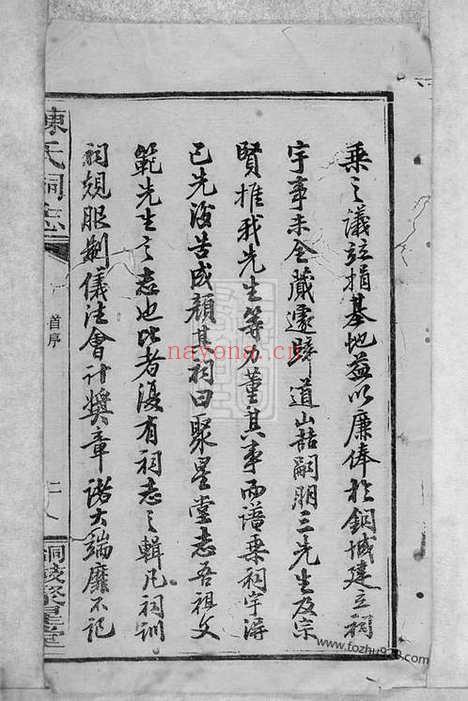 乘之議竝捐基地益以廉俸於銅城建立祠
宇事未全蕆遽歸道山喆嗣朋三先生及宗
賢推我先生等力董其事而譜乘祠宇得
已先後告成顏其祠曰聚星堂志吾祖文
範先生之志也比者復有祠志之輯凡祠訓
祠規服制儀注會計獎章諸大端靡不記
陳氏祠志
首序
銅陵聚星堂
nayona.cn
www.fozhu920.com